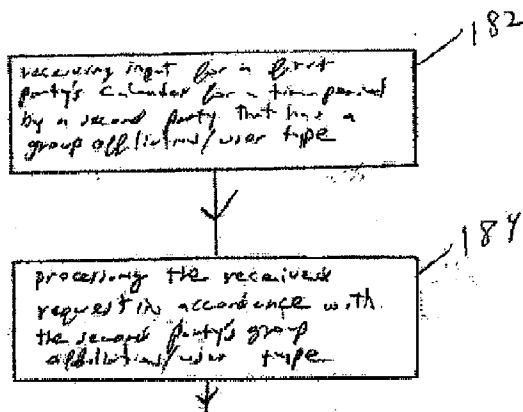 182
receiving input for a first
party's calendar for a time period
by a second party that has a
group affiliations/user type
184
processing the received
request in accordance with
the second party's group
affiliations/user type